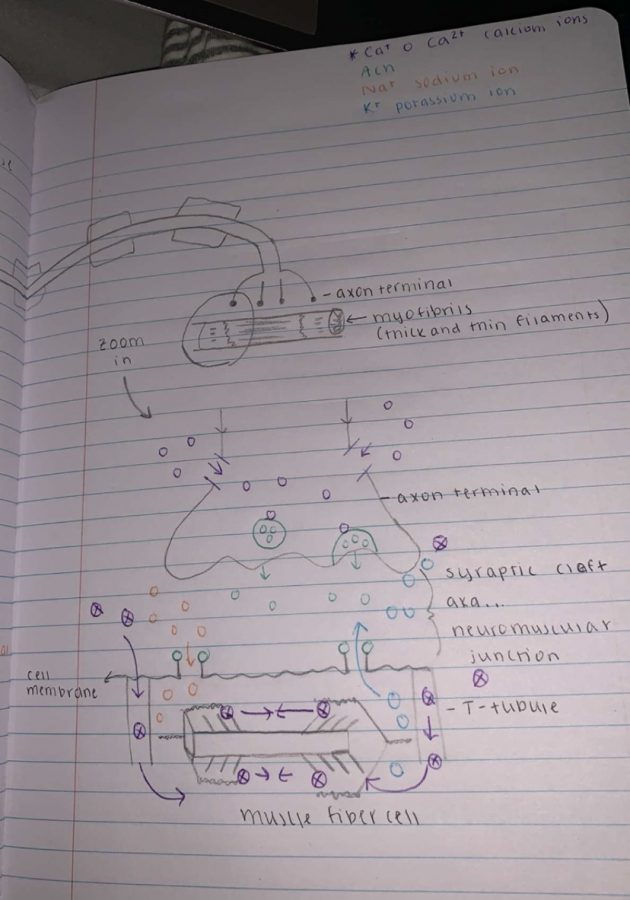 * Ca⁺ o Ca²⁺ calcium ions
ACh
Na⁺ sodium ion
K⁺ potassium ion
- axon terminal
myofibrils
(thick and thin filaments)
zoom
in
- axon terminal
synaptic cleft
aka...
neuromuscular
junction
cell
membrane
- T-tubule
muscle fiber cell